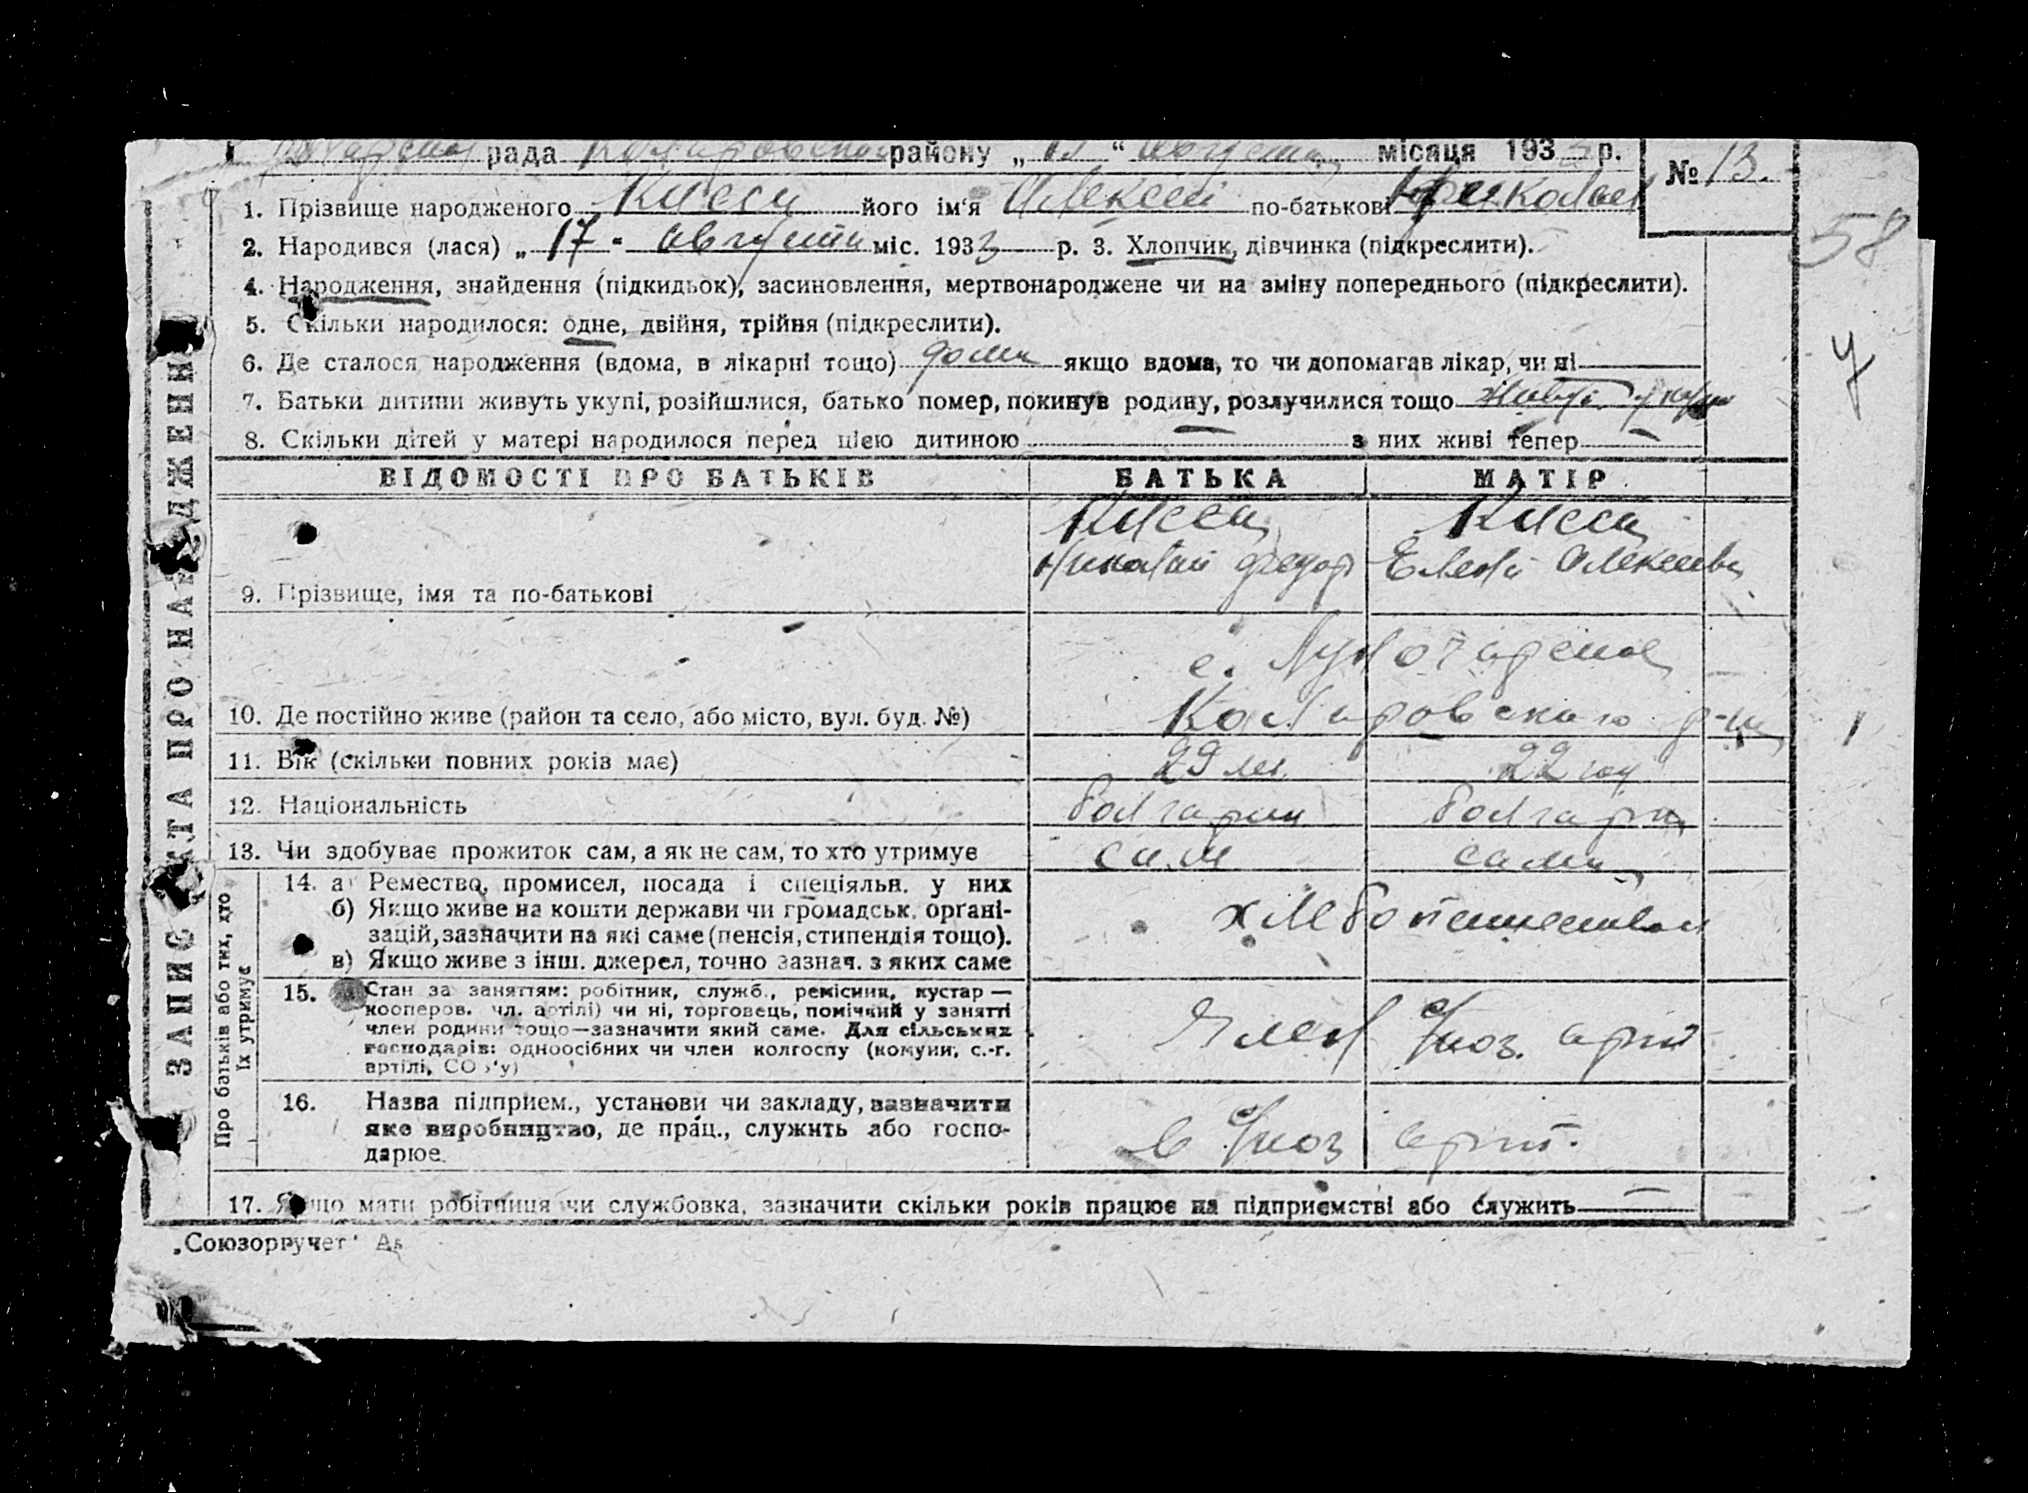 рада Коларовского району „ “ августа місяця 1933 р.
№ 13.
1. Прізвище народженого Кисса його ім‘я Алексей по-батькові Николаев
58
2. Народився (лася) „ 17 “ августа міс. 1933 р. 3. Хлопчик, дівчинка (підкреслити).
4. Народження, знайдення (підкидьок), засиновлення, мертвонароджене чи на зміну попереднього (підкреслити).
5. Скільки народилося: одне, двійня, трійня (підкреслити).
6. Де сталося народження (вдома, в лікарні тощо) дома якщо вдома, то чи допомагав лікар, чи ні
7. Батьки дитини живуть укупі, розійшлися, батько помер, покинув родину, розлучилися тощо живут
8. Скільки дітей у матері народилося перед цією дитиною з них живі тепер
ВІДОМОСТІ ПРО БАТЬКІВ БАТЬКА МАТІР
Кисса Кисса
Николай Федор Елена Алексеевна
9. Прізвище, імя та по-батькові
с. Луночарское
10. Де постійно живе (район та село, або місто, вул. буд. №) Коларовского р-на
11. Вік (скільки повних років має) 29 лет. 22 год
12. Національність болгарин болгарка
13. Чи здобуває прожиток сам, а як не сам, то хто утримує сам сама
14. а) Ремество, промисел, посада і спеціяльн. у них
б) Якщо живе на кошти держави чи громадськ. органі-
зацій, зазначити на які саме (пенсія, стипендія тощо).
в) Якщо живе з інш. джерел, точно зазнач. з яких саме
хлебопашеством
15. Стан за заняттям: робітник, служб., ремісник, кустар —
кооперов. чл. артілі) чи ні, торговець, помічний у занятті
член родини тощо—зазначити який саме. Для сільських
господарів: одноосібних чи член колгоспу (комуни, с.-г.
артілі, СОЗ‘у)
Член с/хоз. арт
16. Назва підприєм., установи чи закладу, зазначити
яке виробництво, де прац., служить або госпо-
дарює.
в с/хоз арт.
17. Якщо мати робітниця чи службовка, зазначити скільки років працює на підприємстві або служить
„Союзоргучет“
ЗАПИС АКТА ПРО НАРОДЖЕННЯ
Про батьків або тих, хто
їх утримує